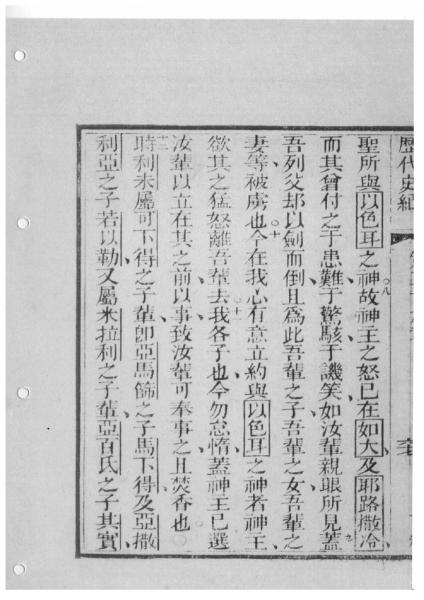 歷代史紀
聖所與以色耳之神八故神王之怒已在如大及耶路撒冷
而其曾付之于患難于驚駭于譏笑如汝輩親眼所見九蓋
吾列父却以劍而倒且為此吾輩之子吾輩之女吾輩之
妻等被虜也十今在我心有意立約與以色耳之神者神王
欲其之猛怒離吾輩去十一我各子也今勿怠惰蓋神王已選
汝輩以立在其之前以事致汝輩可奉事之且焚香也
十二時利未屬可下得之子輩卽亞馬篩之子馬下得及亞撒
利亞之子若以勒又屬米拉利之子輩亞百氏之子其實